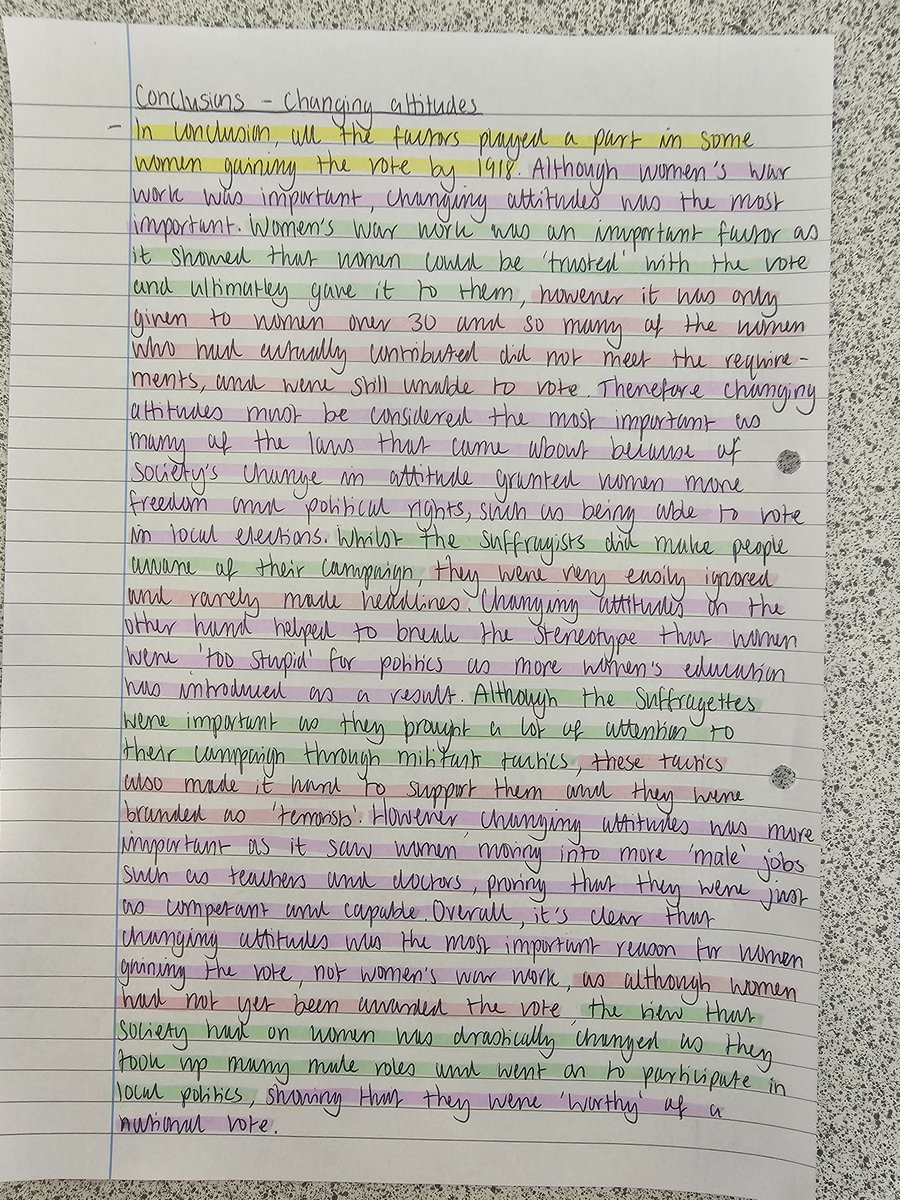 Conclusions - Changing attitudes
- In conclusion, all the factors played a part in some
women gaining the vote by 1918. Although women's war
work was important, changing attitudes was the most
important. Women's war work was an important factor as
it showed that women could be 'trusted' with the vote
and ultimatley gave it to them, however it was only
given to women over 30 and so many of the women
who had actually contributed did not meet the require-
ments, and were still unable to vote. Therefore changing
attitudes must be considered the most important as
many of the laws that came about because of
society's change in attitude granted women more
freedom and political rights, such as being able to vote
in local elections. Whilst the suffragists did make people
aware of their campaign, they were very easily ignored
and rarely made headlines. Changing attitudes on the
other hand helped to break the stereotype that women
were 'too stupid' for politics as more women's education
was introduced as a result. Although the Suffragettes
were important as they brought a lot of attention to
their campaign through militant tactics, these tactics
also made it hard to support them and they were
branded as 'terrorists'. However, changing attitudes was more
important as it saw women moving into more 'male' jobs
such as teachers and doctors, proving that they were just
as competant and capable. Overall, it's clear that
changing attitudes was the most important reason for women
gaining the vote, not women's war work, as although women
had not yet been awarded the vote, the view that
society had on women was drastically changed as they
took up many male roles and went on to participate in
local politics, showing that they were 'worthy' of a
national vote.